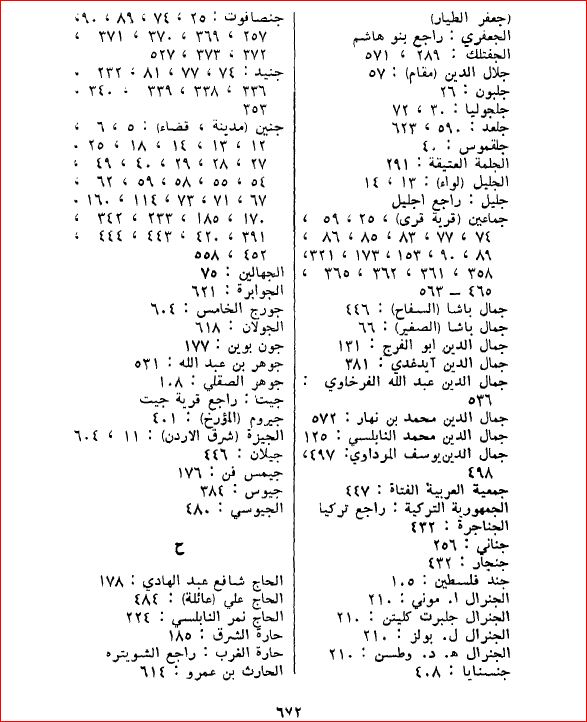 (جعفر الطيار)
الجعفري : راجع بنو هاشم
الجفتلك : ٢٨٩ ، ٥٧١
جلال الدين (مقام) : ٥٧
جلبون : ٢٦
جلجوليا : ٣٠ ، ٧٢
جلعد : ٥٩٠ ، ٦٢٣
جلقموس : ٤٠
الجلمة العتيقة : ٢٩١
الجليل (لواء) : ١٣ ، ١٤
جليل : راجع اجليل
جماعين (قرية قرى) ، ٢٥ ، ٥٩ ،
٧٤ ، ٧٧ ، ٨٣ ، ٨٥ ، ٨٦ ،
٨٩ ، ٩٠ ، ١٥٣ ، ١٧٣ ، ٣٢١،
٣٥٨ ، ٣٦١ ، ٣٦٢ ، ٣٦٥ ،
٤٦٥ – ٥٦٣
جمال باشا (السفاح) : ٤٤٦
جمال باشا (الصغير) : ٦٦
جمال الدين ابو الفرج : ١٣١
جمال الدين آيدغدي : ٣٨١
جمال الدين عبد الله الفرخاوي :
٥٣٦
جمال الدين محمد بن نهار : ٥٧٢
جمال الدين محمد النابلسي : ١٢٥
جمال الدين يوسف المرداوي: ٤٩٧،
٤٩٨
جمعية العربية الفتاة : ٤٤٧
الجمهورية التركية : راجع تركيا
الجناجرة : ٤٣٢
جناني : ٢٥٦
جنجار : ٤٣٢
جند فلسطين : ١٠٥
الجنرال ا. موني : ٢١٠
الجنرال جلبرت كليتن : ٢١٠
الجنرال ل. بولز : ٢١٠
الجنرال ه. د. وطسن : ٢١٠
جنسنايا : ٤٠٨
جنصافوت : ٢٥ ، ٧٤ ، ٨٩ ، ٩٠،
٢٥٧ ، ٣٦٩ ، ٣٧٠ ، ٣٧١ ،
٣٧٢ ، ٣٧٣ ، ٥٢٧
جنيد : ٧٤ ، ٧٧ ، ٨١ ، ٢٣٢ ،
٣٣٦ ، ٣٣٨ ، ٣٣٩ ، ٣٤٠ ،
٣٥٣
جنين (مدينة ، قضاء) : ٥ ، ٦ ،
١٢ ، ١٣ ، ١٤ ، ١٨ ، ٢٥ ،
٢٧ ، ٢٨ ، ٢٩ ، ٤٠ ، ٤٩ ،
٥٤ ، ٥٥ ، ٥٨ ، ٥٩ ، ٦٢ ،
٦٧ ، ٧١ ، ٧٣ ، ١١٤ ، ١٦٠ ،
١٧٠ ، ١٨٥ ، ٢٣٣ ، ٣٤٢ ،
٣٩١ ، ٤٢٠ ، ٤٤٣ ، ٤٤٤ ،
٤٥٢ ، ٥٥٨
الجهالين : ٧٥
الجوابرة : ٦٢١
جورج الخامس : ٦٠٤
الجولان : ٦١٨
جون بوين : ١٧٧
جوهر بن عبد الله : ٥٣١
جوهر الصقلي : ١٠٨
جيت : راجع قرية جيت
جيروم (المؤرخ) : ٤٠١
الجيزة (شرق الاردن) : ١١ ، ٦٠٤
جيلان : ٤٤٦
جيمس فن : ١٧٦
جيوس : ٣٨٤
الجيوسي : ٤٨٠
ح
الحاج شافع عبد الهادي : ١٧٨
الحاج علي (عائلة) : ٤٨٤
الحاج نمر النابلسي : ٢٢٤
حارة الشرق : ١٨٥
حارة الغرب : راجع الشويتره
الحارث بن عمرو : ٦١٤
٦٧٢